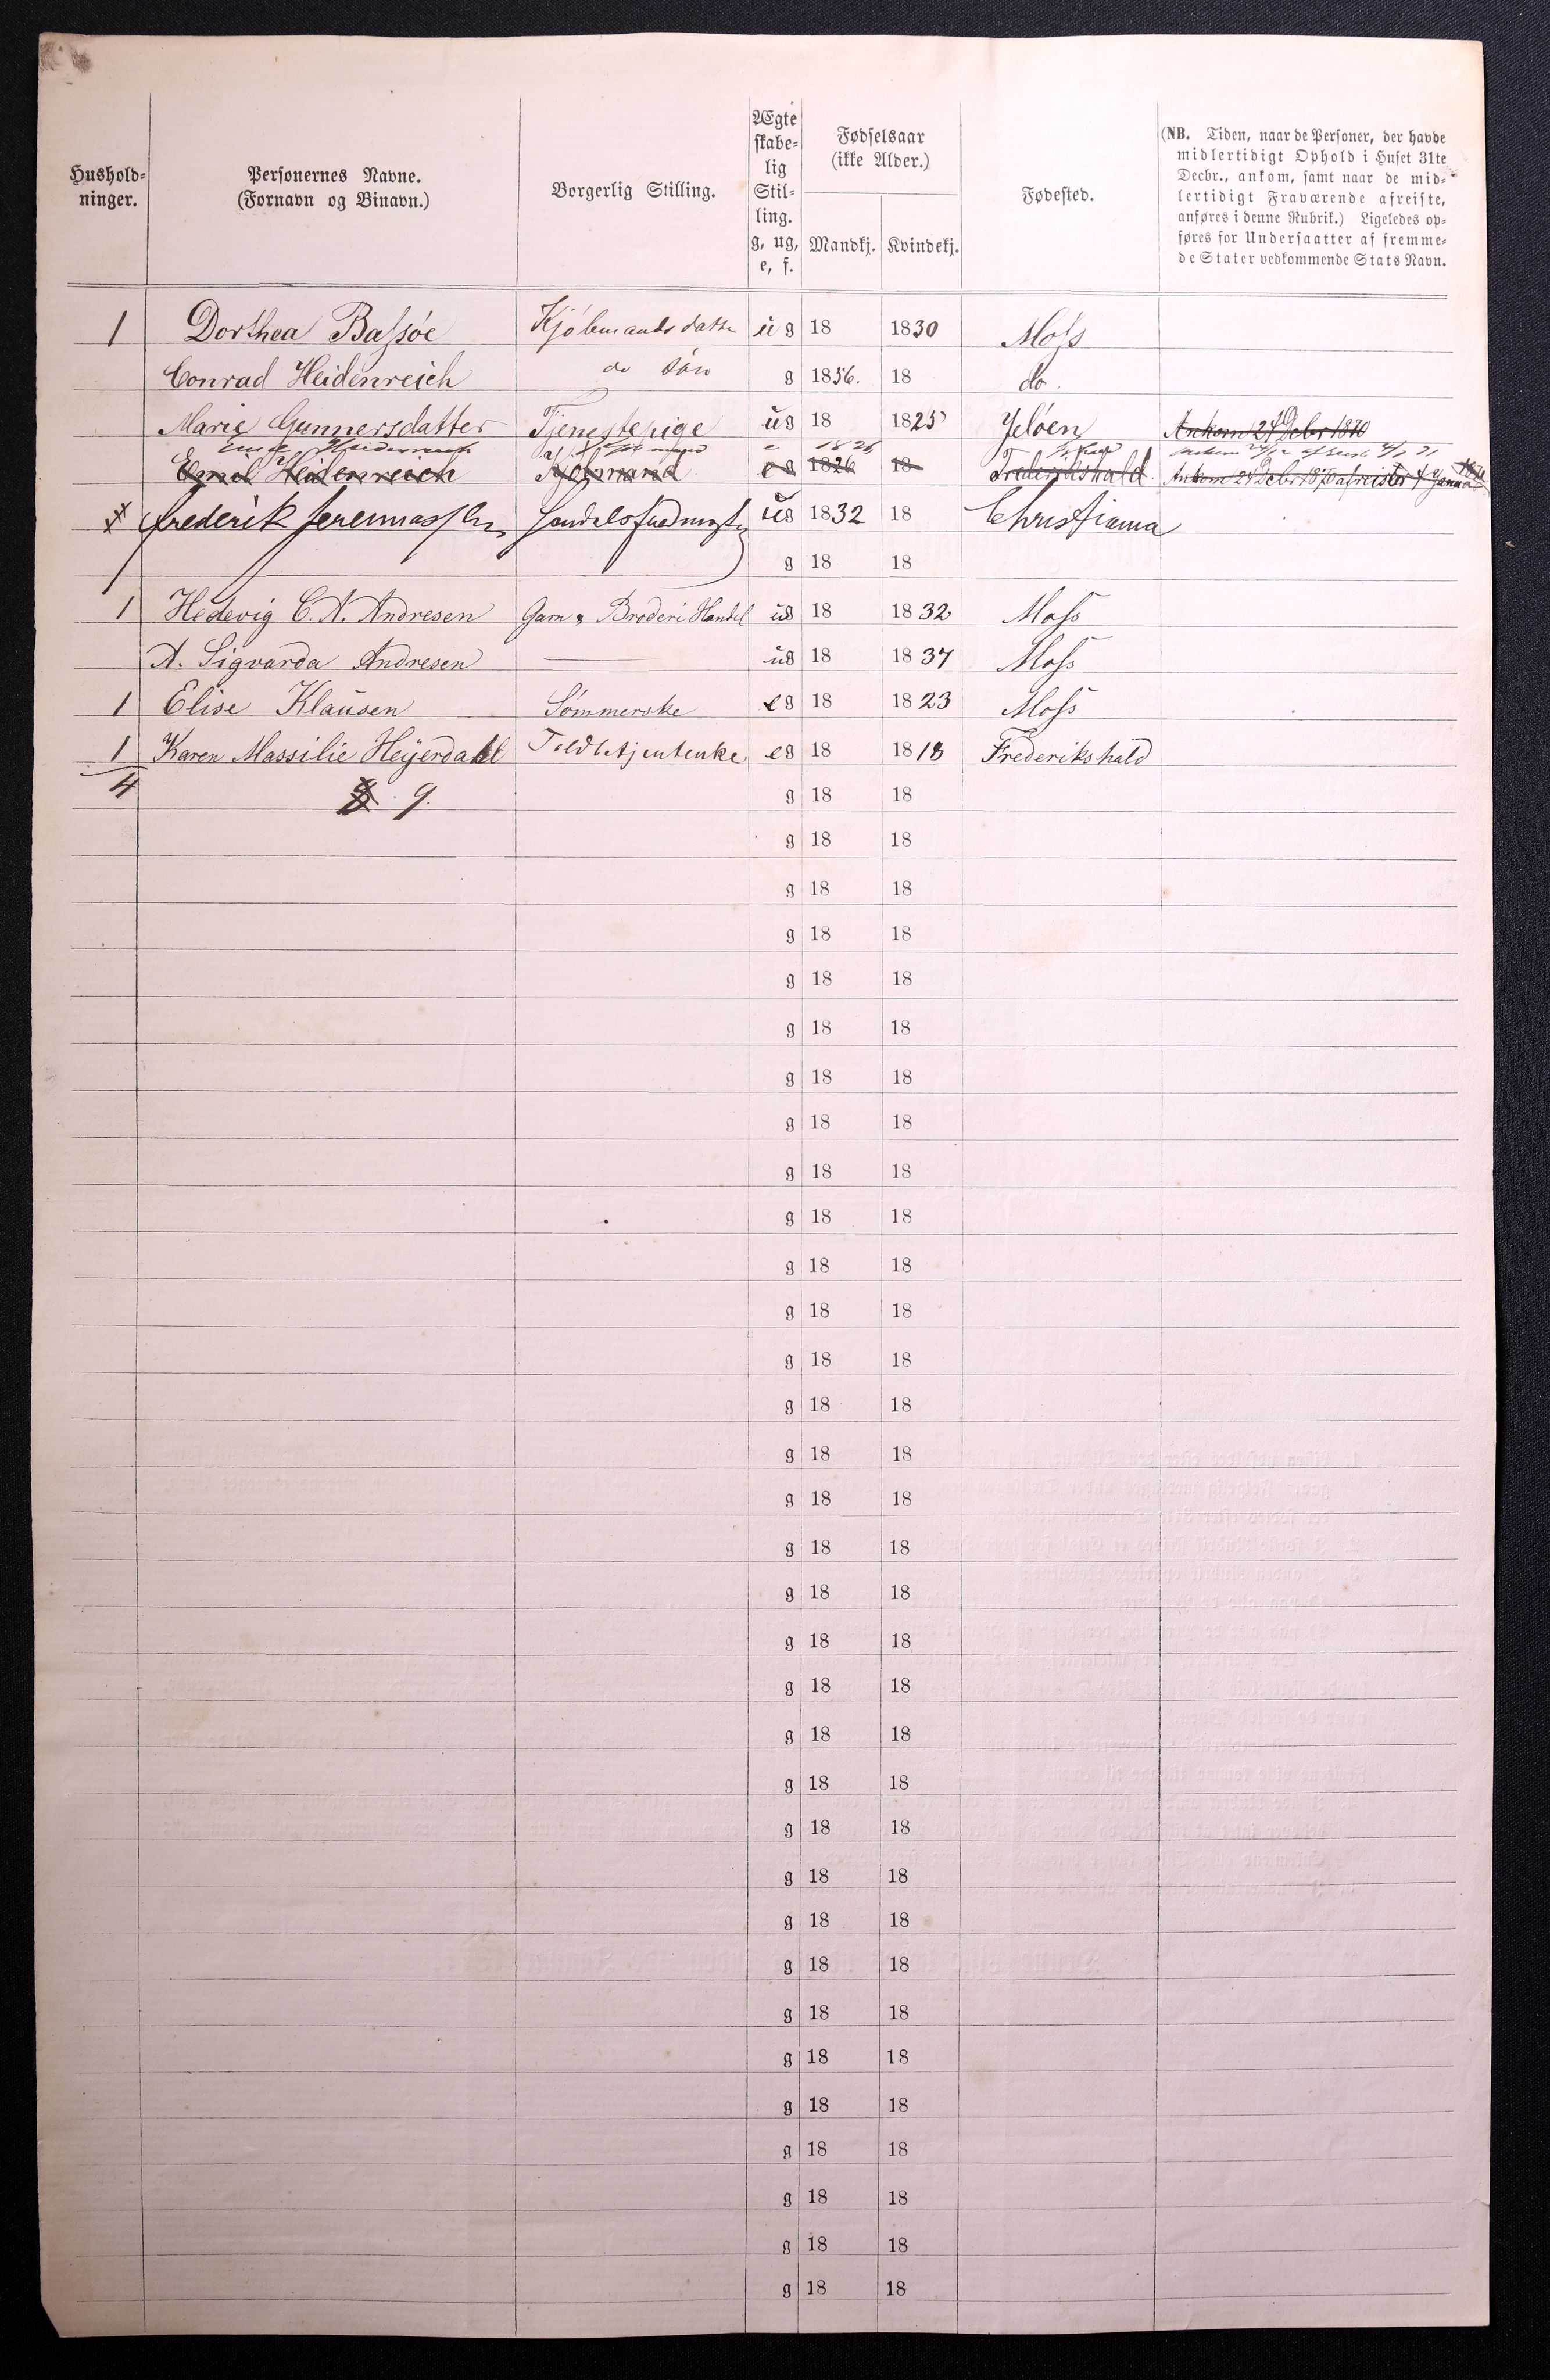 Hushold-
ninger.
Personernes Navne.
(Fornavn og Binavn.)
Borgerlig Stilling.
Ægte
skabe-
lig
Stil-
ling.
g, ug,
e, f.
Fødselsaar
(ikke Alder.)
Mandkj. Kvindekj.
Fødested.
(NB. Tiden, naar de Personer, der havde
midlertidigt Ophold i Huset 31te
Decbr., ankom, samt naar de mid-
lertidigt Fraværende afreiste,
anføres i denne Rubrik.) Ligeledes op-
føres for Undersaatter af fremme-
de Stater vedkommende Stats Navn.
1 Dorthea Bassøe Kjøbmands datter ug 18 1830 Moss
Conrad Heidenreich do Søn g 1856. 18 do.
Marie Gunnersdatter Tjenestepige ug 18 1825 Jeløen Ankom 24 Debr 1870
Emil Heidenreich 1826
Emil Heidenreich Kjøbmand eg 1826 18 Frederikshald Ankom 24 Debr 1870 afreister 4 Januar 1871
Frederik ug 1832 18 Christiania
g 18 18
1 Hedevig C. A. Andresen Garn & Broderi Handel ug 18 1832 Moss
A. Sigvarda Andresen ug 18 1837 Moss
1 Elise Klausen Sømmerske eg 18 1823 Moss
1 Karen Massilie Heyerdahl eg 18 1818 Frederikshald
4 9. g 18 18
g 18 18
g 18 18
g 18 18
g 18 18
g 18 18
g 18 18
g 18 18
g 18 18
g 18 18
g 18 18
g 18 18
g 18 18
g 18 18
g 18 18
g 18 18
g 18 18
g 18 18
g 18 18
g 18 18
g 18 18
g 18 18
g 18 18
g 18 18
g 18 18
g 18 18
g 18 18
g 18 18
g 18 18
g 18 18
g 18 18
g 18 18
g 18 18